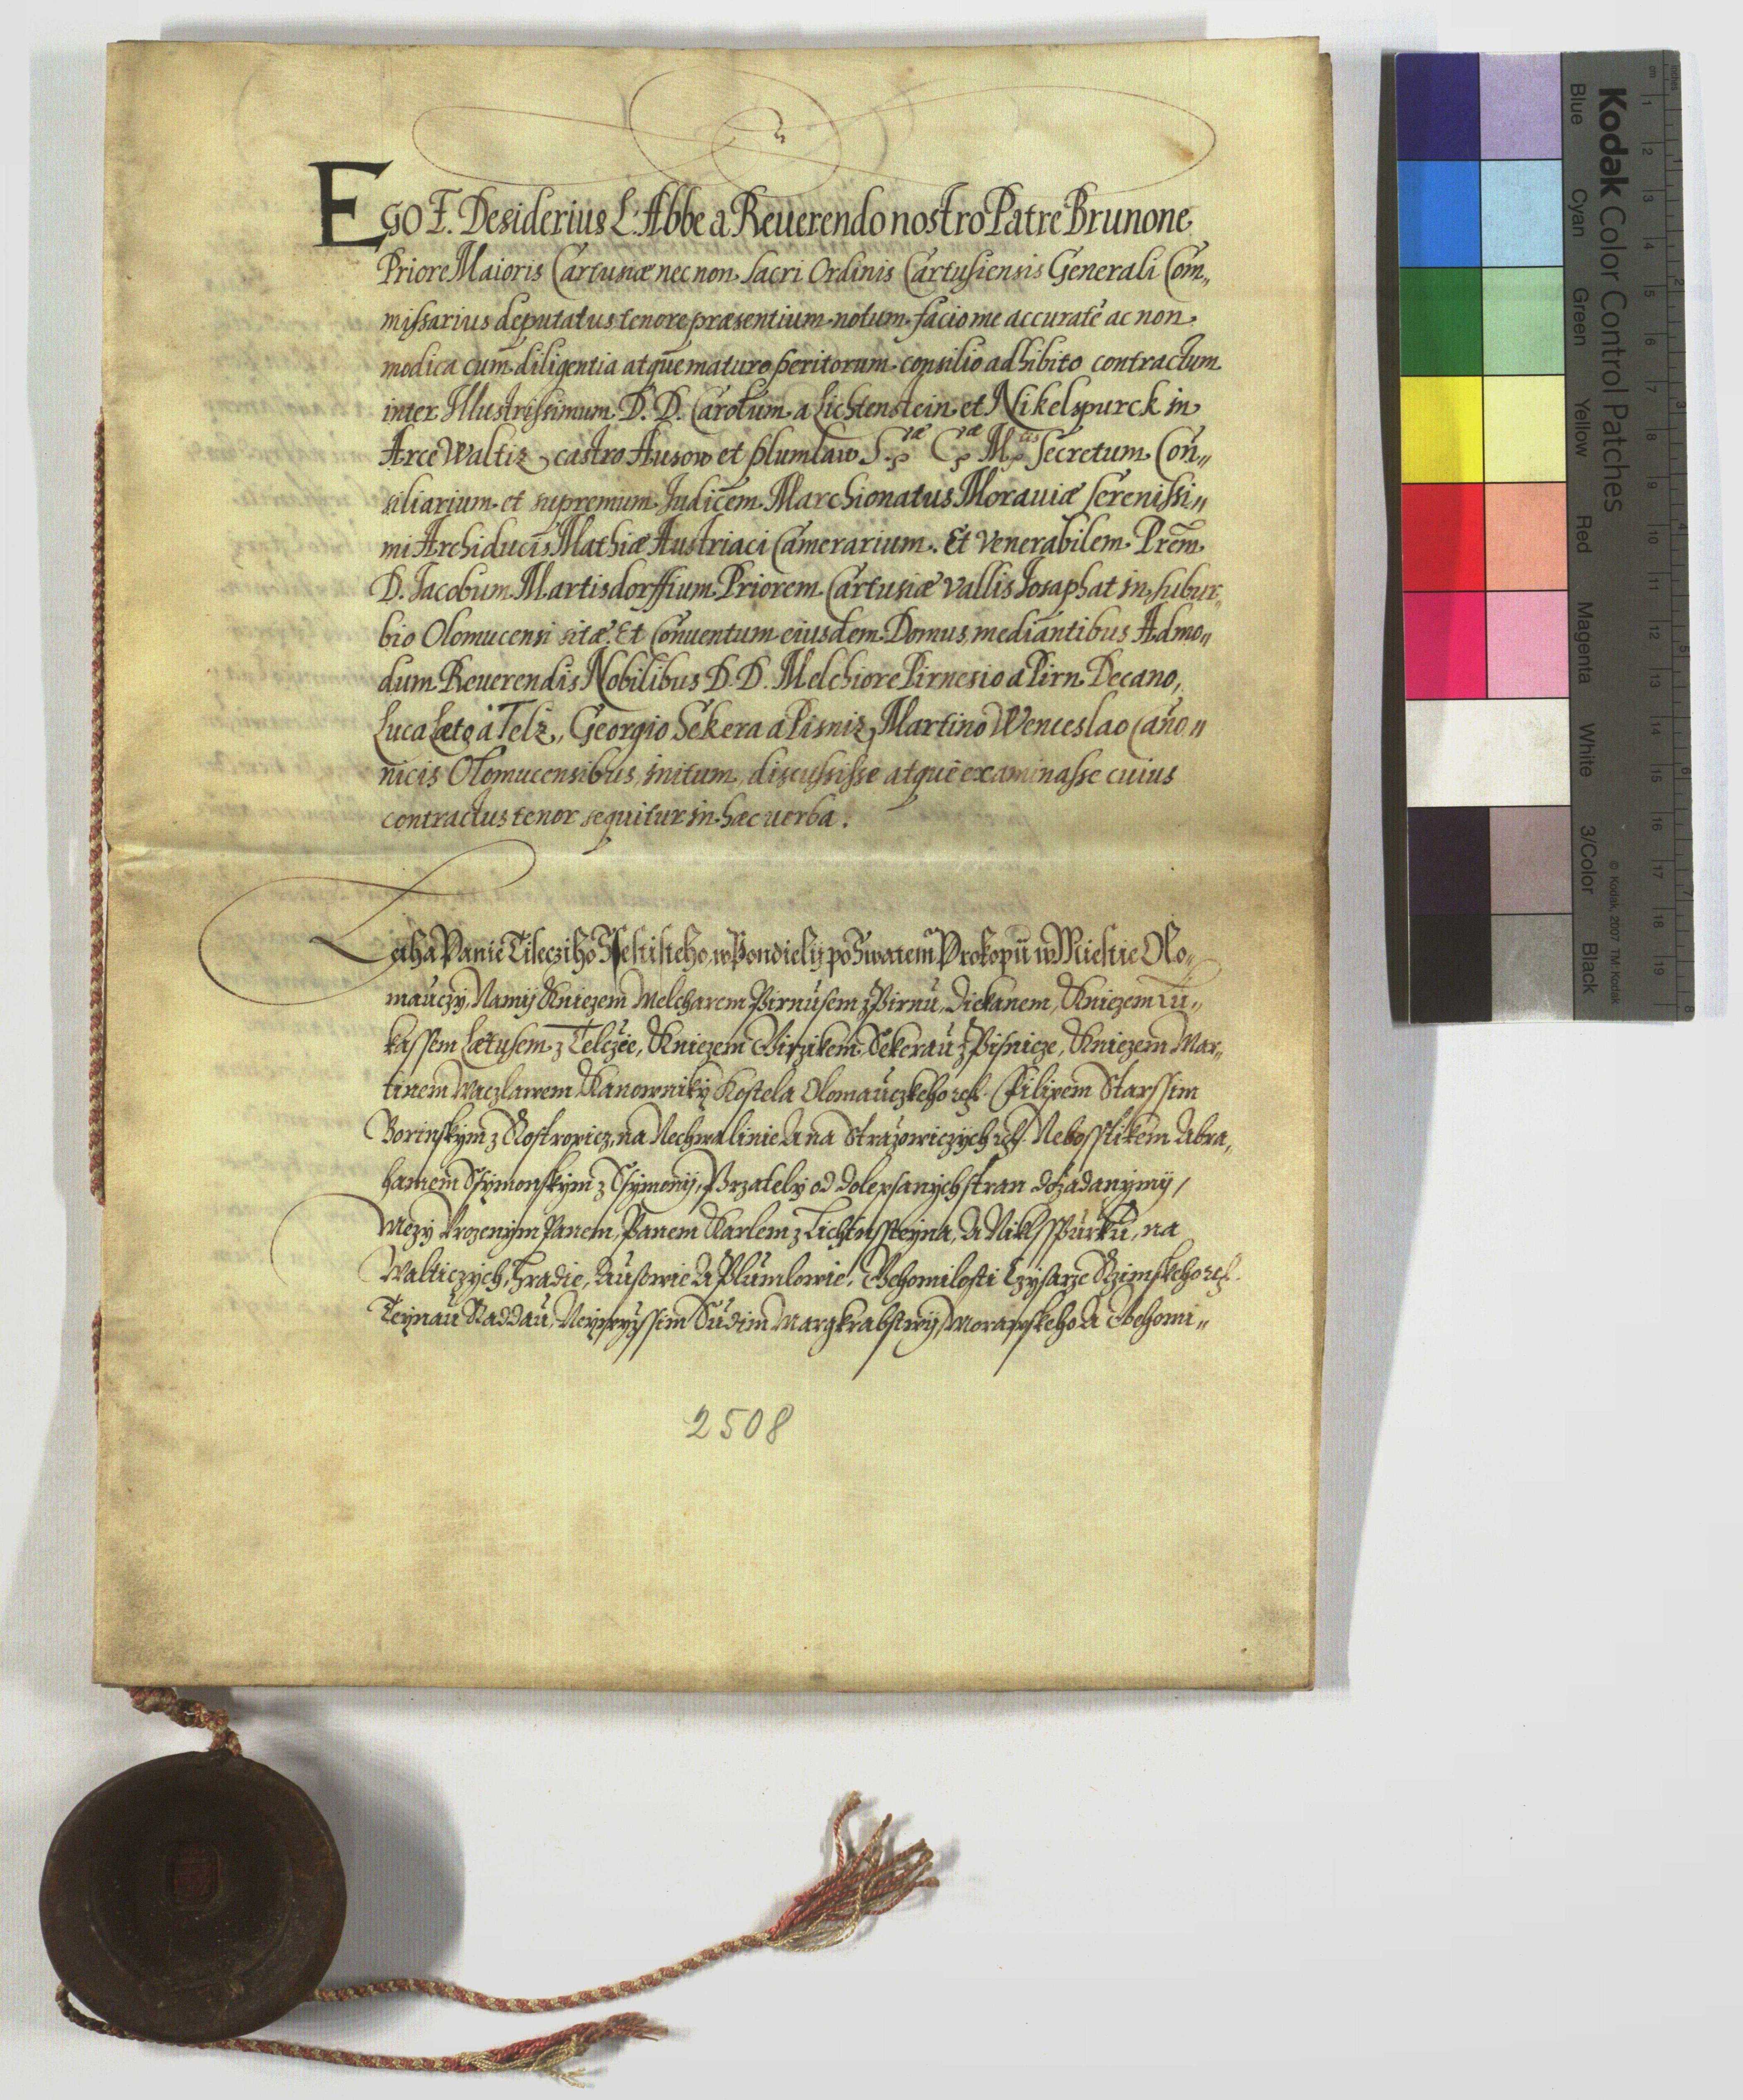 EGO F. Desiderius L'Abbe a Reuerendo nostro Patre Brunone
Priore Maioris Cartusiæ nec non sacri Ordinis Cartusiensis Generali Com„
missarius deputatus tenore præsentium notum facio me accuraté ac non
modica cum diligentia atque maturo peritorum consilio adhibito contractum
inter Illustrissimum D. D. Carolum a Lichtenstein et Nikelspurck in
Arce Waltiz, castro Ausow et plumlaw S. C. M. Secretum Con„
siliarium et supremum Judicem Marchionatus Morauiæ serenissi„
mi Archiducis Mathiæ Austriaci Camerarium. Et Venerabilem Prēm
D. Jacobum Martisdorffium Priorem Cartusiæ vallis Josaphat in subur„
bio Olomucensi sitæ. Et Conuentum eiusdem Domus mediantibus Admo„
dum Reuerendis Nobilibus D. D. Melchiore Pirnesio a Pirn Decano,
Luca Læto a Telz, Georgio Sekera a Pisniz, Martino Wenceslao Cano„
nicis Olomucensibus, initum, discussisse atque examinasse cuius
contractus tenor sequitur in hæc uerba.
Letha Panie Tisicziho Ssestisteho, w Pondielij po Swatem Prokopu w Miestie Olo„
mauczy, Namij Kniezem Melcharem Pirnusem z Pirnu, Diekanem, Kniezem Lu„
kassem Lætusem z Telcze, Kniezem Girzikem Sekerau z Pisnicze, Kniezem Mar„
tinem Waczlawem Kanowniky Kostela Olomauczkeho ꝛcꝭ. Filipem Starssim
Borinskym z Rostropicz, na Nechwalinie A na Strazowiczych ꝛcꝭ. Nebosstikem Abra„
hamem Ssymonskym z Ssymonij, Przately od dolepsanych stran dozadanymy,
Mezy Vrozenym Panem, Panem Karlem z Lichtnssteyna, A Niklsspurku, na
Walticzych, Hradie, Ausowie A Plumlowie, Gehomilosti Czysarze Rzimskeho ꝛcꝭ.
Teynau Raddau, Neywyssim Sudim Margkrabstwij Morawskeho A Gehomi„
2508
Kodak Color Control Patches
Blue Cyan Green Yellow Red Magenta White 3/Color Black
© Kodak, 2007 TM: Kodak
cm 1 2 3 4 5 6 7 8 9 10 11 12 13 14 15 16 17 18 19
inches 1 2 3 4 5 6 7 8